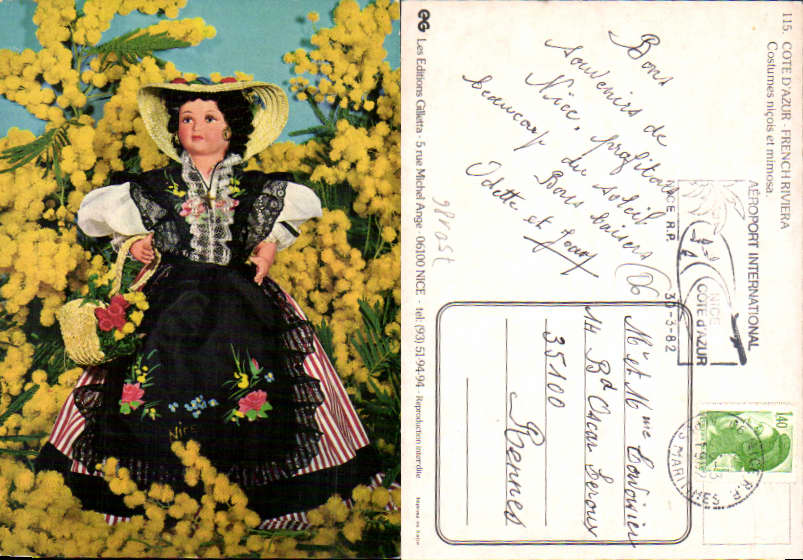 NICE
115. COTE D'AZUR - FRENCH RIVIERA
Costumes niçois et mimosa.
Bons
souvenirs de
Nice, profitons
beaucoup du soleil
Bons baisers
Odette et
AÉROPORT INTERNATIONAL
NICE
CÔTE d'AZUR
NICE R.P.
30-3-82
1,40
R.P.
MARITIMES
Mr et Mme
Bd Oscar Leroux
35100
Rennes
EG Les Editions Gilletta - 5 rue Michel Ange - 06100 NICE - tel. (93) 51-94-94 - Reproduction interdite